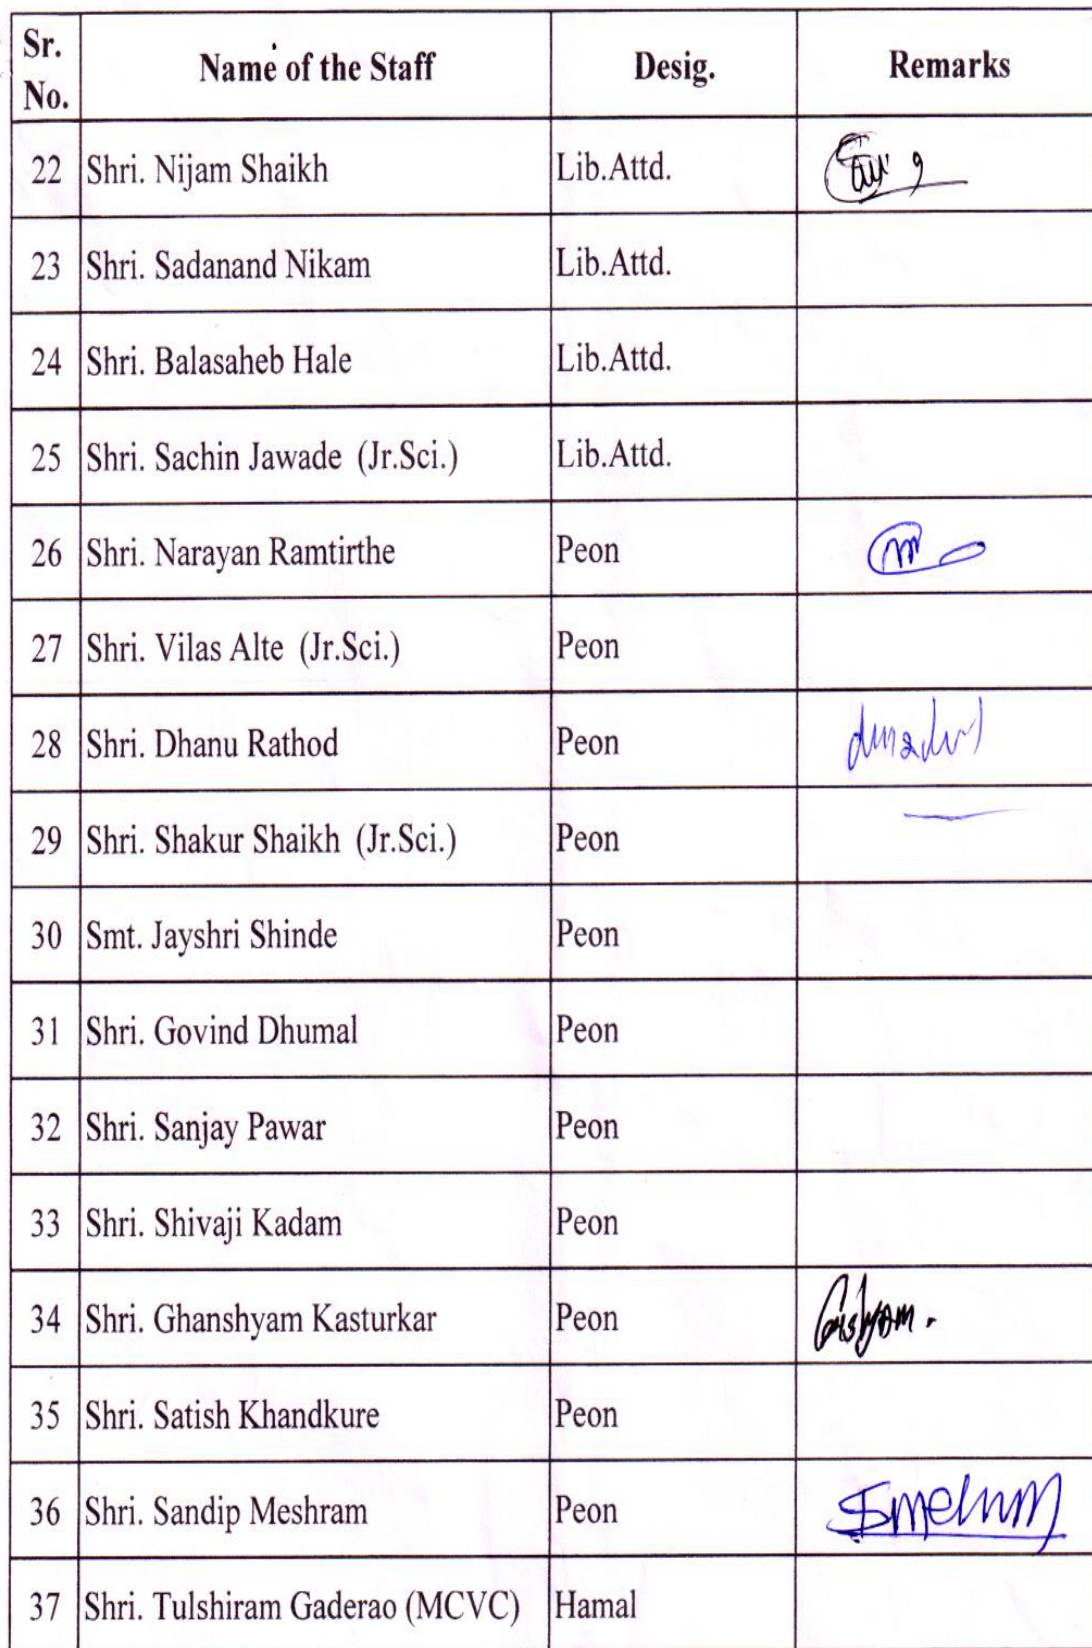 Sr. No. Name of the Staff Desig. Remarks
22 Shri. Nijam Shaikh Lib.Attd.
23 Shri. Sadanand Nikam Lib.Attd.
24 Shri. Balasaheb Hale Lib.Attd.
25 Shri. Sachin Jawade (Jr.Sci.) Lib.Attd.
26 Shri. Narayan Ramtirthe Peon
27 Shri. Vilas Alte (Jr.Sci.) Peon
28 Shri. Dhanu Rathod Peon
29 Shri. Shakur Shaikh (Jr.Sci.) Peon
30 Smt. Jayshri Shinde Peon
31 Shri. Govind Dhumal Peon
32 Shri. Sanjay Pawar Peon
33 Shri. Shivaji Kadam Peon
34 Shri. Ghanshyam Kasturkar Peon
35 Shri. Satish Khandkure Peon
36 Shri. Sandip Meshram Peon
37 Shri. Tulshiram Gaderao (MCVC) Hamal